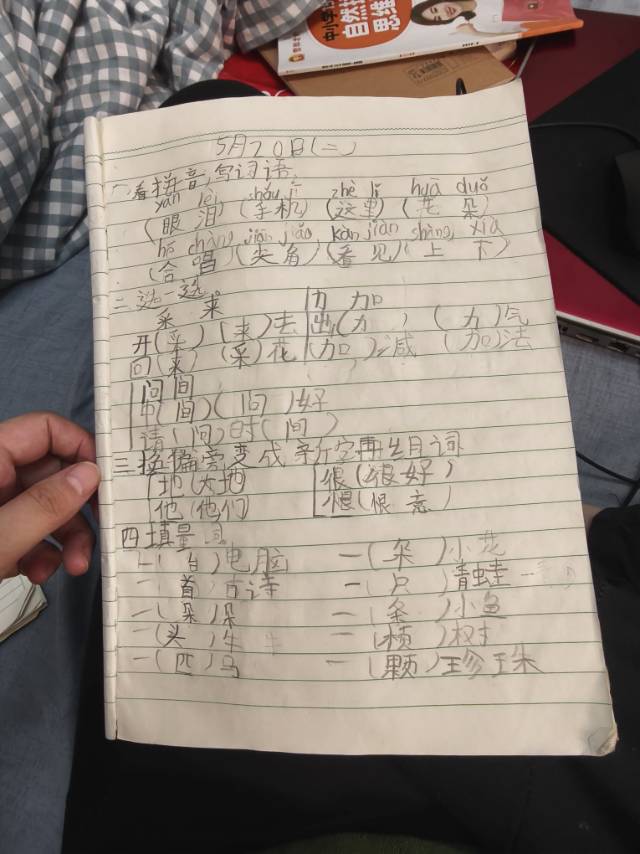 自然
思维
5月20日(二)
一、看拼音,写词语。
yǎn lèi shǒu jī zhè lǐ huā duǒ
(眼 泪)(手机)(这里)(花 朵)
hé chàng jiān jiǎo kàn jiàn shàng xià
(合 唱)(尖角)(看见)(上 下)
二、选一选。
采 来 力 加
开(采)(来)去 出(力) (力)气
回(来)(采)花 (加)减 (加)法
问 间
中(间)(问)好
请(问)时(间)
三、换偏旁变成新字再组词
地(大地) 很(很好)
他(他们) 恨(恨意)
四、填量词
一(台)电脑 一(朵)小花
一(首)古诗 一(只)青蛙
一(朵)朵 一(条)小鱼
一(头)牛 一(棵)树
一(匹)马 一(颗)珍珠